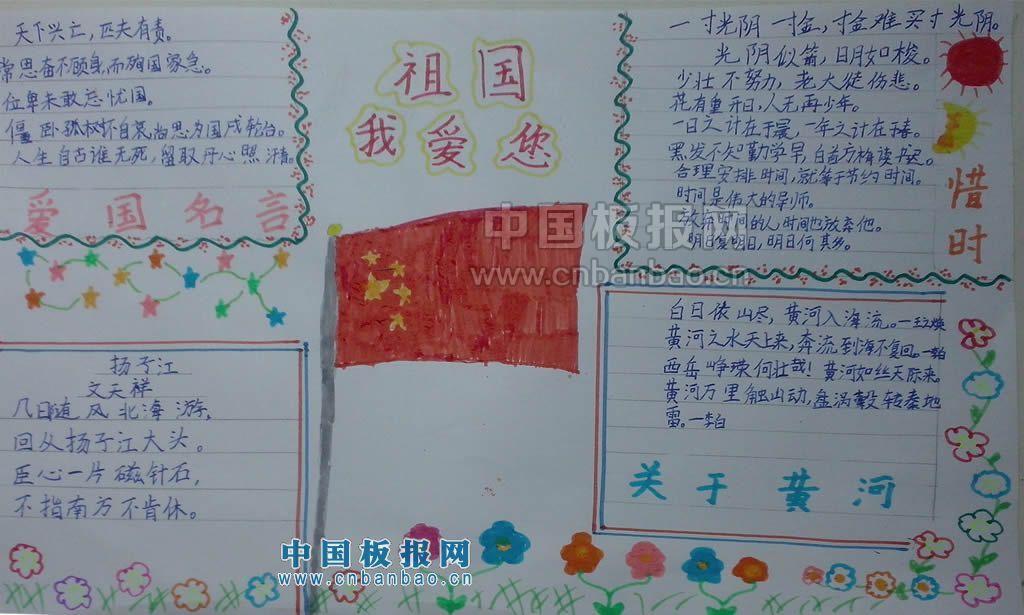 天下兴亡，匹夫有责。
常思奋不顾身，而殉国家急。
位卑未敢忘忧国。
僵卧孤村不自哀，尚思为国戍轮台。
人生自古谁无死，留取丹心照汗青。
爱国名言
扬子江
文天祥
几日随风北海游，
回从扬子江大头。
臣心一片磁针石，
不指南方不肯休。
祖国
我爱您
中国板报网
www.cnbanbao.cn
一寸光阴一寸金，寸金难买寸光阴。
光阴似箭，日月如梭。
少壮不努力，老大徒伤悲。
花有重开日，人无再少年。
一日之计在于晨，一年之计在于春。
黑发不知勤学早，白首方悔读书迟。
合理安排时间，就等于节约时间。
时间是伟大的导师。
放弃时间的人，时间也放弃他。
明日复明日，明日何其多。
惜时
白日依山尽，黄河入海流。—王之焕
黄河之水天上来，奔流到海不复回。—李白
西岳峥嵘何壮哉！黄河如丝天际来。
黄河万里触山动，盘涡毂转秦地
雷。—李白
关于黄河
中国板报网
www.cnbanbao.cn